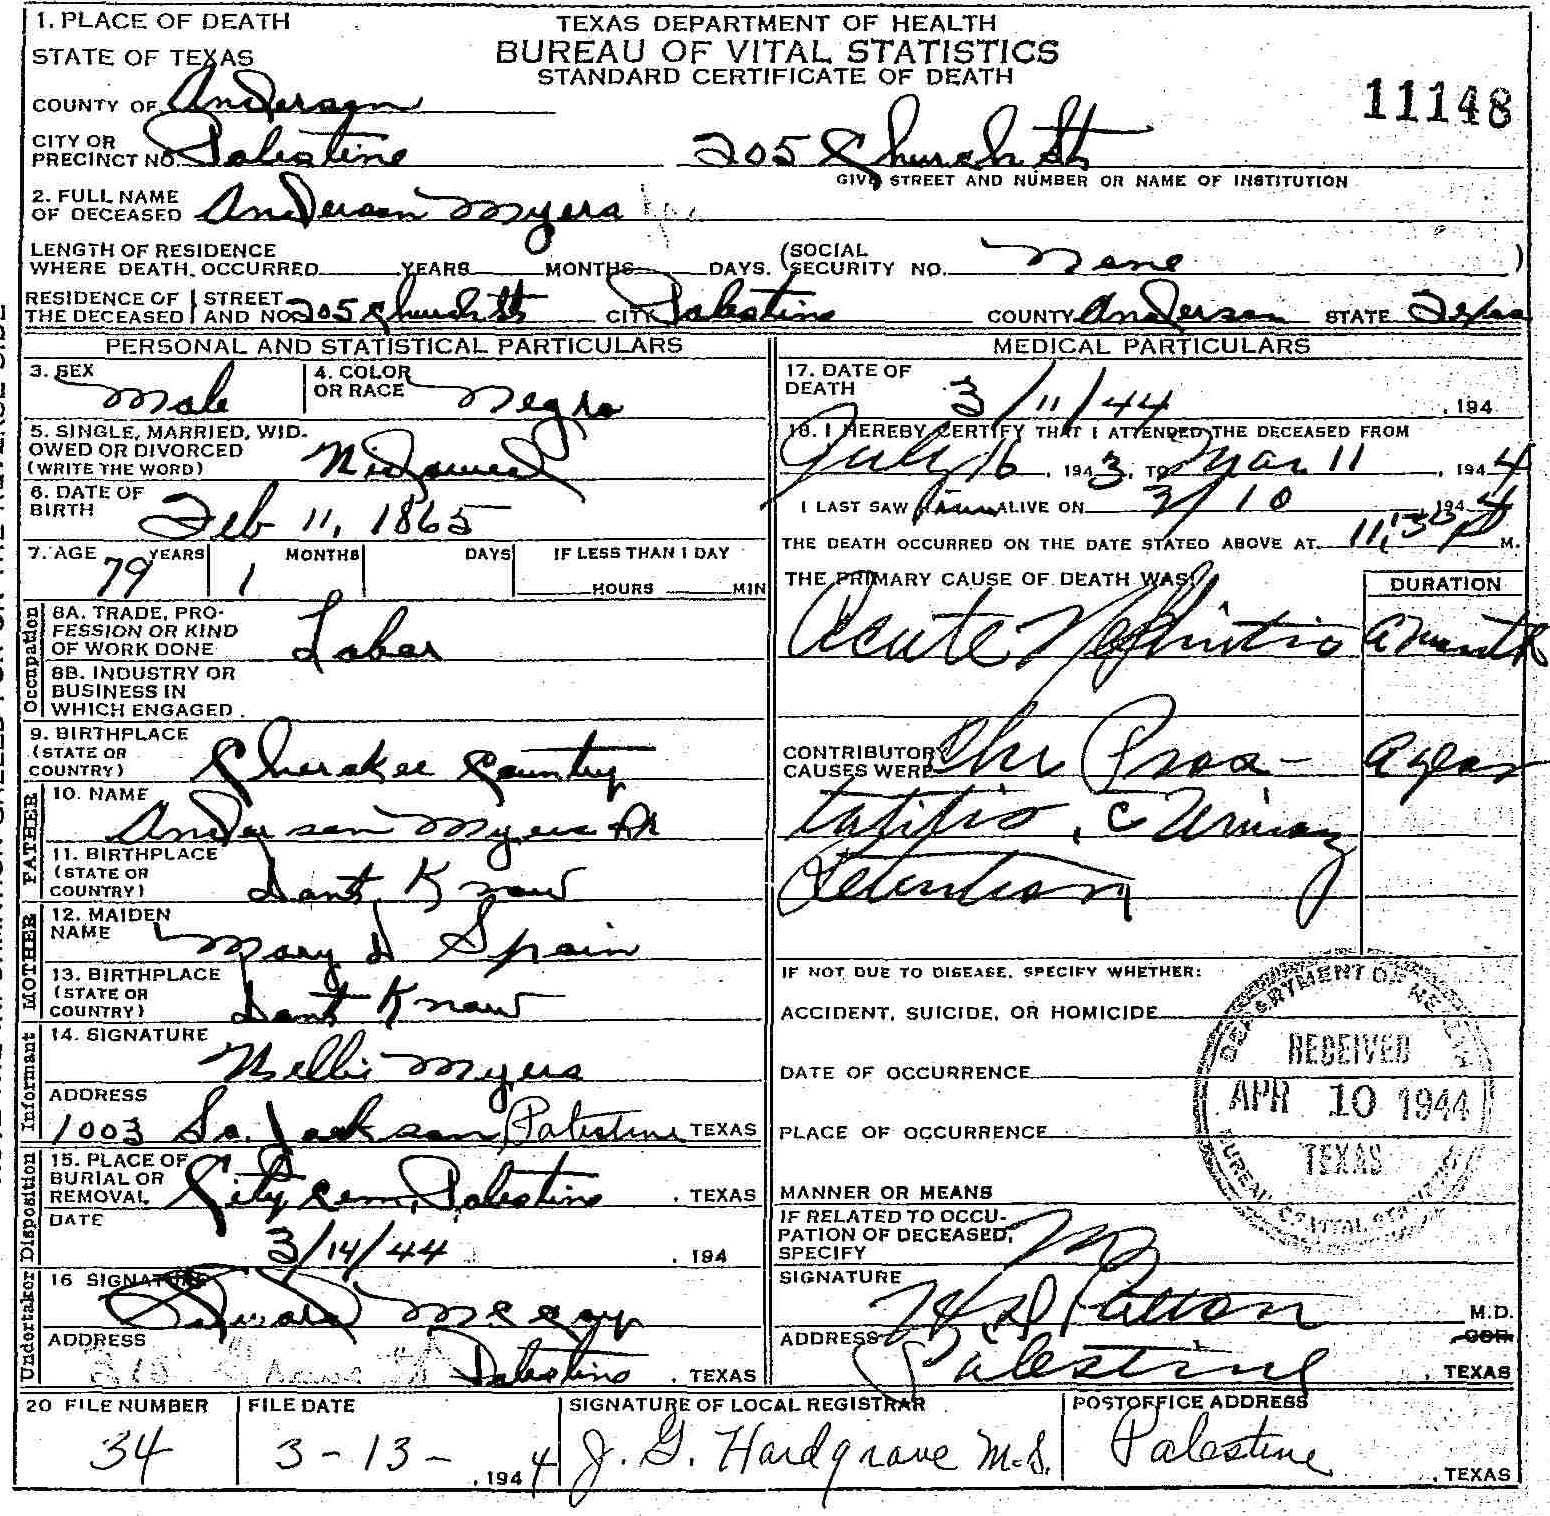 1. PLACE OF DEATH
TEXAS DEPARTMENT OF HEALTH
BUREAU OF VITAL STATISTICS
STANDARD CERTIFICATE OF DEATH
STATE OF TEXAS
11148
COUNTY OF Anderson
CITY OR PRECINCT NO. Palestine 205 Church St
GIVE STREET AND NUMBER OR NAME OF INSTITUTION
2. FULL NAME OF DECEASED Anderson Myers
LENGTH OF RESIDENCE WHERE DEATH OCCURRED YEARS MONTHS DAYS. (SOCIAL SECURITY NO. None )
RESIDENCE OF THE DECEASED STREET AND NO. 205 Church St CITY Palestine COUNTY Anderson STATE Texas
PERSONAL AND STATISTICAL PARTICULARS
3. SEX Male
4. COLOR OR RACE Negro
5. SINGLE, MARRIED, WIDOWED OR DIVORCED (WRITE THE WORD) Widowed
6. DATE OF BIRTH Feb 11, 1865
7. AGE 79 YEARS 1 MONTHS DAYS IF LESS THAN 1 DAY
HOURS MIN
Occupation
8A. TRADE, PROFESSION OR KIND OF WORK DONE Labor
8B. INDUSTRY OR BUSINESS IN WHICH ENGAGED.
9. BIRTHPLACE (STATE OR COUNTRY) Cherokee Country
FATHER
10. NAME Anderson Myers Sr
11. BIRTHPLACE (STATE OR COUNTRY) Dont Know
MOTHER
12. MAIDEN NAME Mary D Spain
13. BIRTHPLACE (STATE OR COUNTRY) Dont Know
Informant
14. SIGNATURE Nellie Myers
ADDRESS
1003 So. Jackson, Palestine TEXAS
Disposition
15. PLACE OF BURIAL OR REMOVAL City Cem, Palestine , TEXAS
DATE 3/14/44 , 194
Undertaker
16 SIGNATURE
ADDRESS Palestine , TEXAS
MEDICAL PARTICULARS
17. DATE OF DEATH 3/11/44 , 194
18. I HEREBY CERTIFY THAT I ATTENDED THE DECEASED FROM
July 16, 1943, TO Mar 11, 1944
I LAST SAW him ALIVE ON 3/10 1944
THE DEATH OCCURRED ON THE DATE STATED ABOVE AT 11:30 P M.
THE PRIMARY CAUSE OF DEATH WAS: DURATION
Acute Nephritis a month
CONTRIBUTORY CAUSES WERE Chr Pros- a year
tatitis, c Urinary
Retention
IF NOT DUE TO DISEASE, SPECIFY WHETHER:
ACCIDENT, SUICIDE, OR HOMICIDE
DATE OF OCCURRENCE
PLACE OF OCCURRENCE
MANNER OR MEANS
IF RELATED TO OCCUPATION OF DECEASED, SPECIFY No
SIGNATURE Patton M.D.
ADDRESS Palestine , TEXAS
DEPARTMENT OF HEALTH
RECEIVED
APR 10 1944
TEXAS
BUREAU OF VITAL STATISTICS
20 FILE NUMBER 34
FILE DATE 3-13- , 1944
SIGNATURE OF LOCAL REGISTRAR J. G. Hardgrave M.D.
POSTOFFICE ADDRESS Palestine , TEXAS